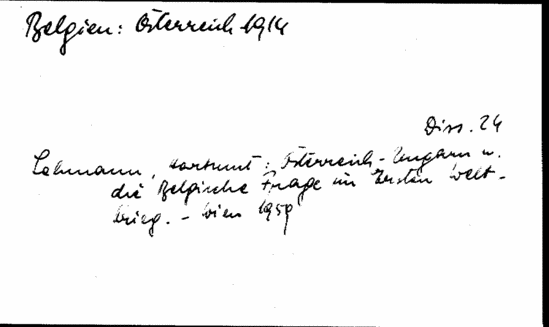 Belgien: Österreich 1914
Diss. 24
Lehmann, Hartmut: Österreich-Ungarn u.
die Belgische Frage im Ersten Welt-
krieg. - Wien 1959